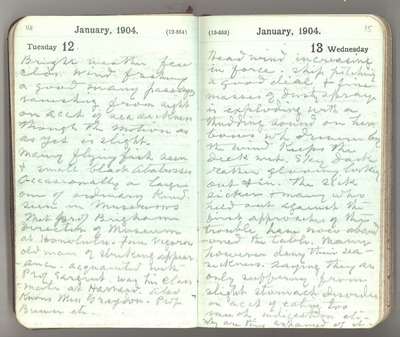 14
January, 1904.
(12-354)
Tuesday 12
Bright weather few
clds. Wind freshening
a good many passengers
vanishing from sight
on acct of sea sickness
though the motion as
as yet is slight.
Many flying fish seen
& small black Albatrosses
Occasionally a large
one of ordinary kind
seen in Museums
Met Prof Brigham
Director of Museum
at Honolulu. fine vigorous
old man of striking appear-
ance acquainted with
Prof Sargent was his class
mate at Harvard. Also
knows Miss Graydon. Prof
Brewer etc.
15
January, 1904.
(13-353)
13 Wednesday
Head wind increasing
in force. Ship pitching
a good deal & fine
masses of dusty spray
is exploding with a
thudding sound on her
bows wh driven by
the wind keeps the
deck wet. Sky dark
rather gloomy looking
out & in. The sick
sicker & many who
held out against the
first approaches of the
trouble have now aband
oned the table. Many
however deny their sea
sickness. Saying they are
only suffering from
slight stomach disorder
on acct of eating too
much, indigestion etc.
Why are they ashamed of it.